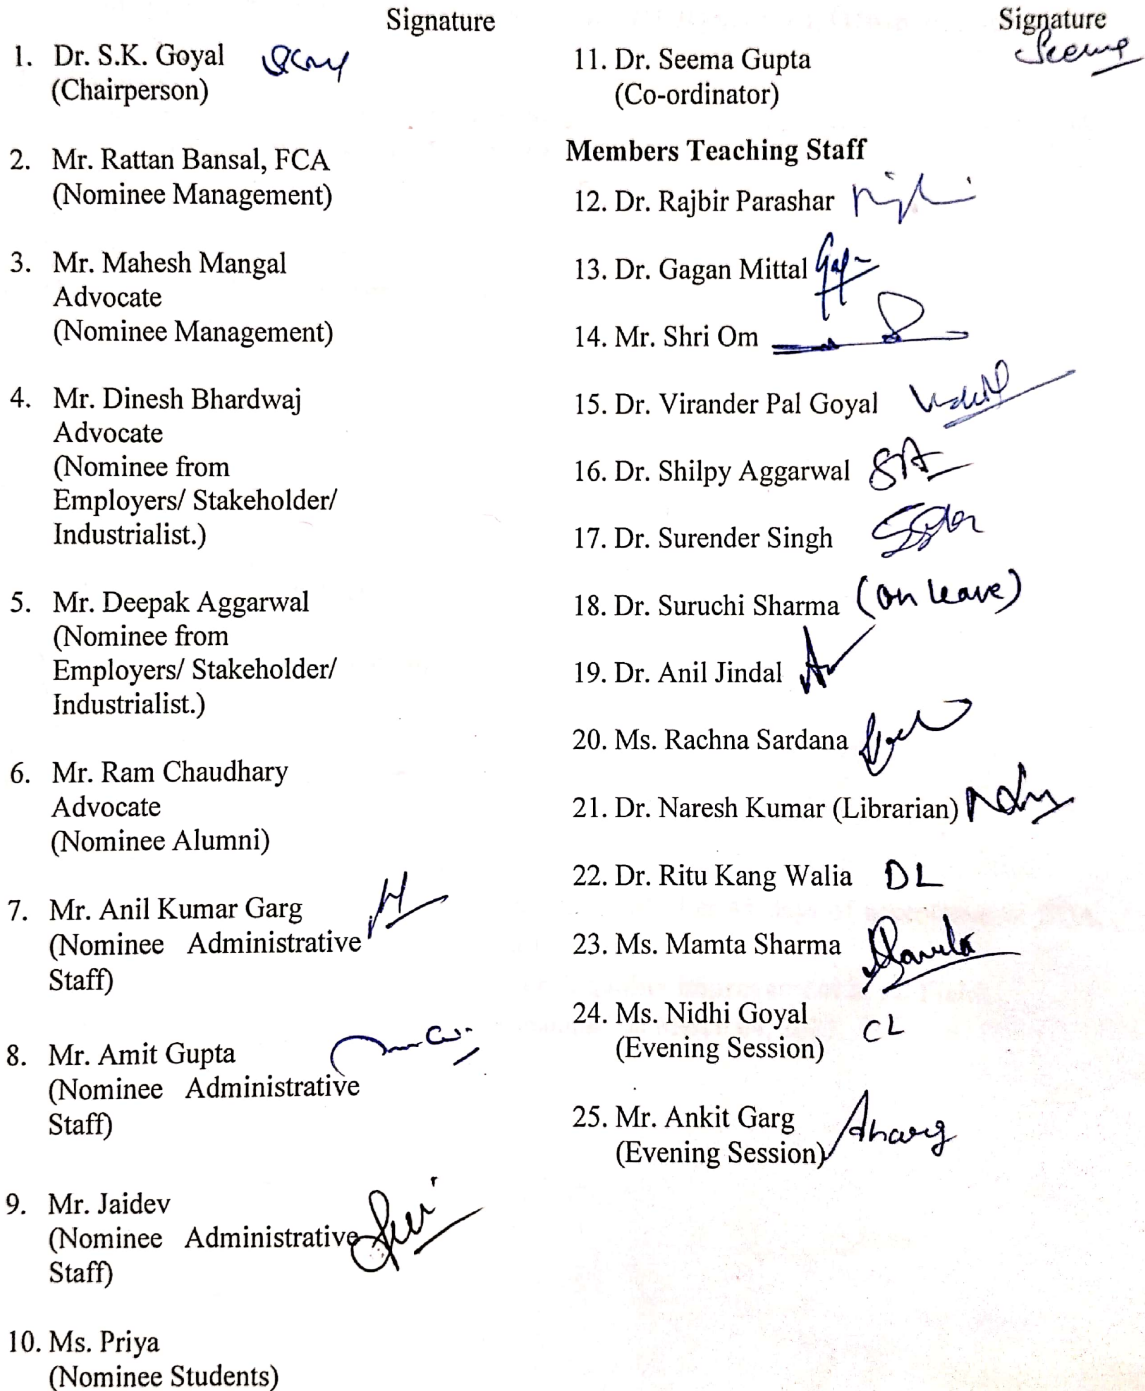 Signature
1. Dr. S.K. Goyal
(Chairperson)
2. Mr. Rattan Bansal, FCA
(Nominee Management)
3. Mr. Mahesh Mangal
Advocate
(Nominee Management)
4. Mr. Dinesh Bhardwaj
Advocate
(Nominee from
Employers/ Stakeholder/
Industrialist.)
5. Mr. Deepak Aggarwal
(Nominee from
Employers/ Stakeholder/
Industrialist.)
6. Mr. Ram Chaudhary
Advocate
(Nominee Alumni)
7. Mr. Anil Kumar Garg
(Nominee Administrative
Staff)
8. Mr. Amit Gupta
(Nominee Administrative
Staff)
9. Mr. Jaidev
(Nominee Administrative
Staff)
10. Ms. Priya
(Nominee Students)
Signature
11. Dr. Seema Gupta Seema
(Co-ordinator)
Members Teaching Staff
12. Dr. Rajbir Parashar
13. Dr. Gagan Mittal
14. Mr. Shri Om
15. Dr. Virander Pal Goyal
16. Dr. Shilpy Aggarwal
17. Dr. Surender Singh
18. Dr. Suruchi Sharma (on leave)
19. Dr. Anil Jindal
20. Ms. Rachna Sardana
21. Dr. Naresh Kumar (Librarian)
22. Dr. Ritu Kang Walia DL
23. Ms. Mamta Sharma Mamta
24. Ms. Nidhi Goyal CL
(Evening Session)
25. Mr. Ankit Garg
(Evening Session)